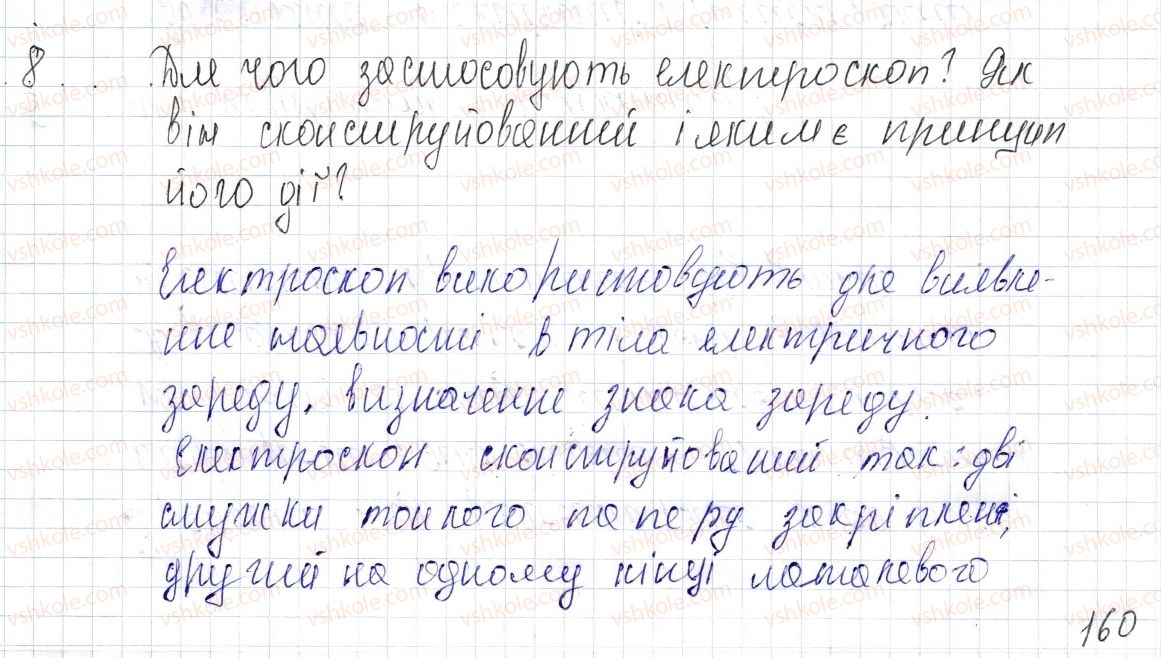 8. Для чого застосовують електроскоп? Як
він сконструйований і яким є принцип
його дії?
Електроскоп використовують для виявле-
ння наявності в тіла електричного
заряду, визначення знака заряду.
Електроскоп сконструйований так: дві
смужки тонкого паперу закріплені,
другий на одному кінці металевого
160